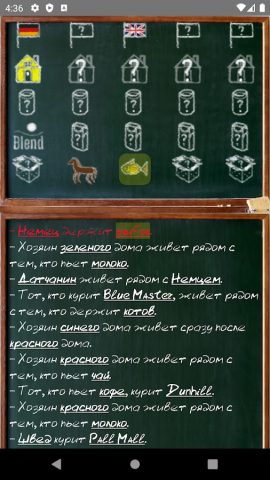 4:36
? ? ?
? ? ? ?
? ? ? ? ?
Blend ? ? ? ?
? ? ?
- Немец держит
- Хозяин зеленого дома живет рядом с
тем, кто пьет молоко.
- Датчанин живет рядом с Немцем.
- Тот, кто курит Blue Master, живет рядом
с тем, кто держит котов.
- Хозяин синего дома живет сразу после
красного дома.
- Хозяин красного дома живет рядом с
тем, кто пьет чай.
- Тот, кто пьет кофе, курит Dunhill.
- Хозяин красного дома живет рядом с
тем, кто пьет молоко.
- Швед курит Pall Mall.